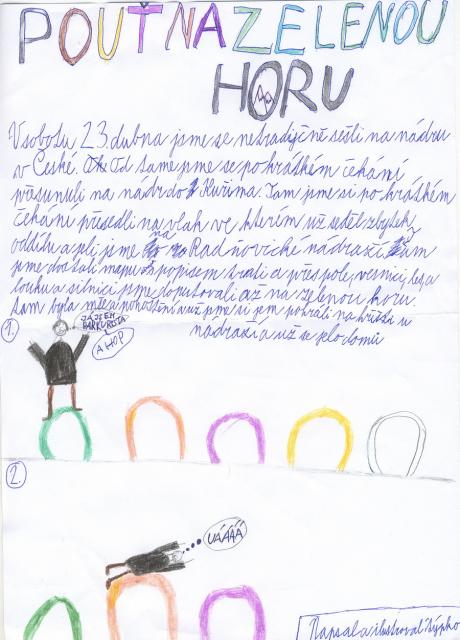 POUŤ NA ZELENOU
HORU
V sobotu 23. dubna jsme se netradičně sešli na nádru
v České. Od tama jsme se po krátkém čekání
přesunuli na nádr do Kuřima. Tam jsme si po krátkém
čekání přesedli na vlak ve kterém už seděl zbytek
oddílu a jeli jsme na Radňovické nádraží. Tam
jsme dostali mapu s popisem trasti a přes pole, vesnici, lesa
louku a silnici jsme doputovali až na zelenou horu.
tam byla mše a pohoštění a už jsme si jen pohráli na hřišti u
nádraží a už se jelo domů
1.
JÁ JSEM
PARKURISTA
A HOP
2.
UÁÁÁÁ
Napsal a ilustroval